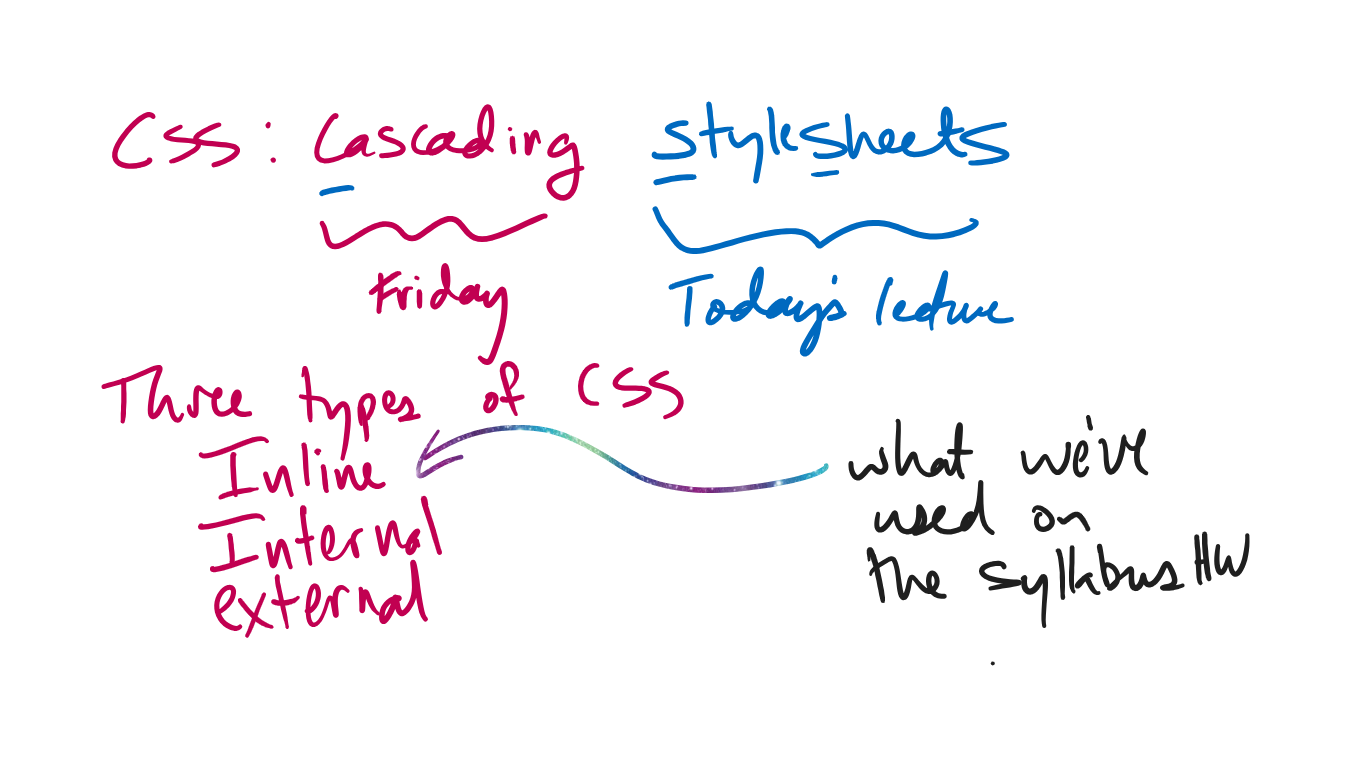 CSS: Cascading Stylesheets
Friday Today's lecture
Three types of CSS
Inline
Internal
external
what we've
used on
the syllabus HW